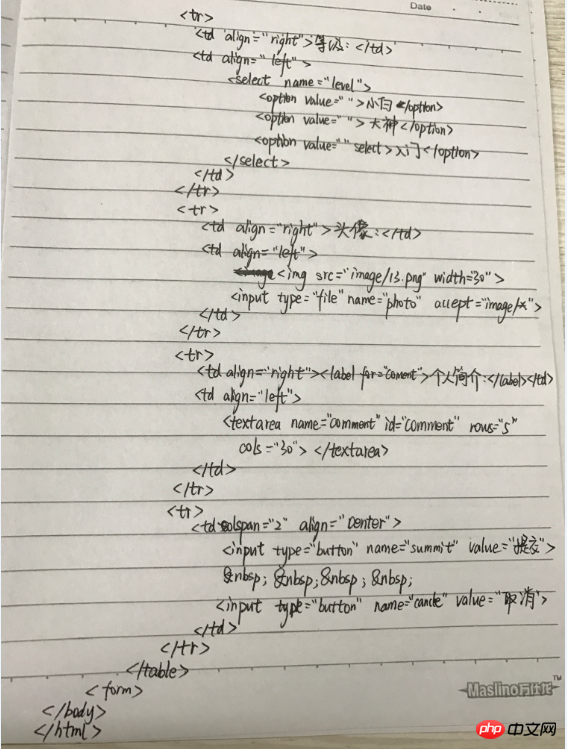 Date
<tr>
<td align="right">等级:</td>
<td align="left">
<select name="level">
<option value="">小白</option>
<option value="">大神</option>
<option value="" select>入门</option>
</select>
</td>
</tr>
<tr>
<td align="right">头像:</td>
<td align="left">
<img src="image/13.png" width="30">
<input type="file" name="photo" accept="image/*">
</td>
</tr>
<tr>
<td align="right"><label for="coment">个人简介:</label></td>
<td align="left">
<textarea name="comment" id="comment" rows="5"
cols="30"></textarea>
</td>
</tr>
<tr>
<td colspan="2" align="center">
<input type="button" name="summit" value="提交">
&nbsp; &nbsp;&nbsp; &nbsp;
<input type="button" name="cancle" value="取消">
</td>
</tr>
</table>
<form>
</body>
</html>
Maslino万仕龙™
php 中文网